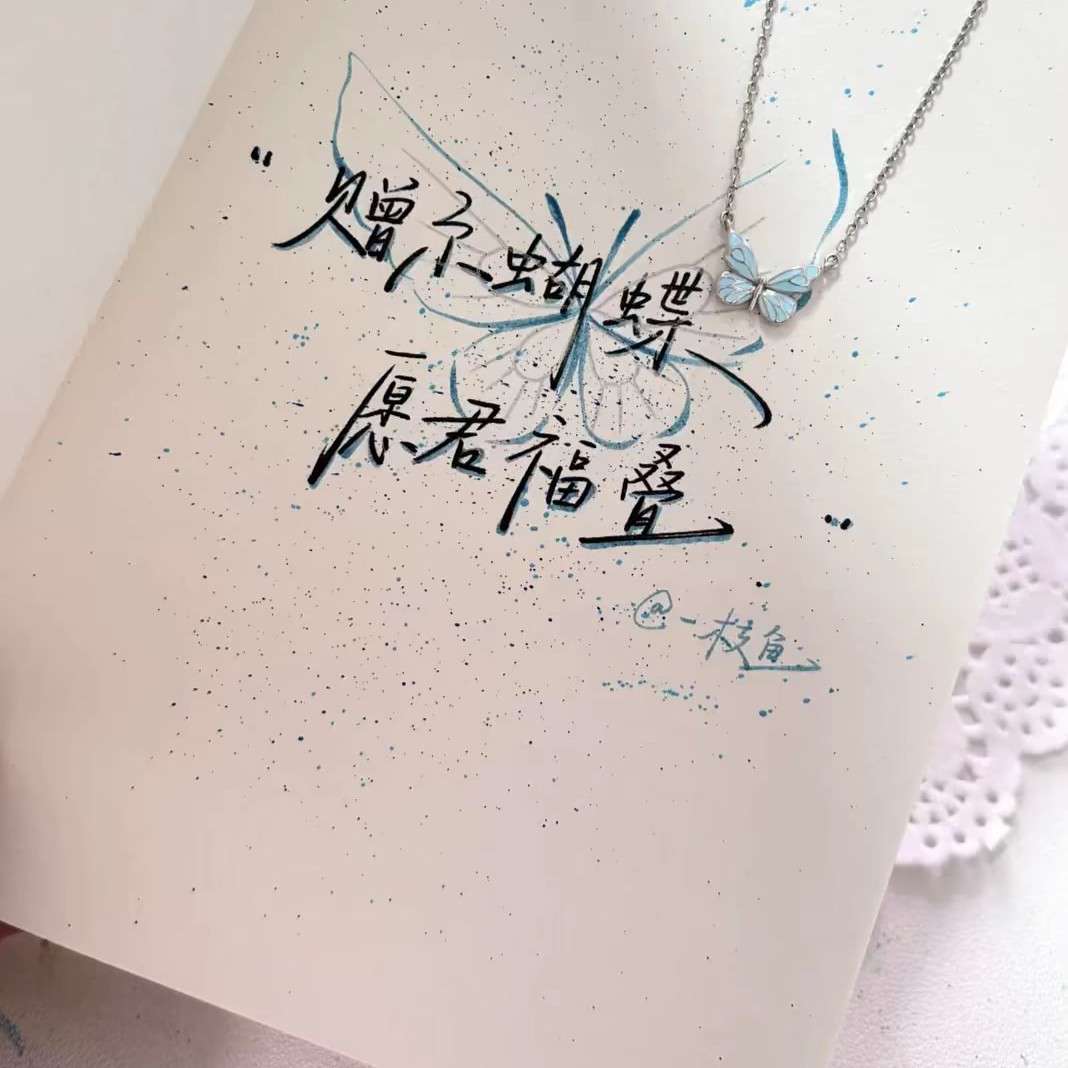 "赠尔蝴蝶
愿君福叠"
@一枝鱼